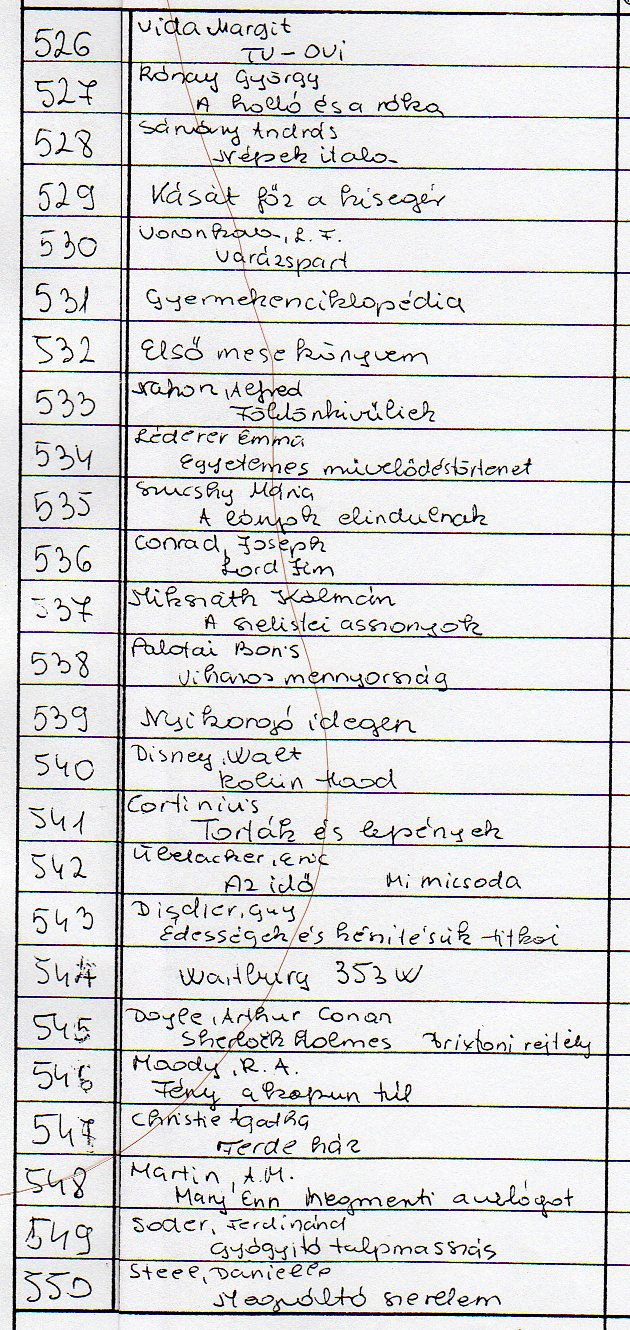 526 Vida Margit
TV-OVI
527 Rónay György
A holló és a róka
528 Sárány András
Népek itala
529 Kását főz a kisegér
530 Voronkova, L. F.
Varázspart
531 Gyermekenciklopédia
532 Első mese könyvem
533 Nahon, Alfred
Földönkivüliek
534 Léderer Emma
Egyetemes müvelődéstörtenet
535 Szucsky Mária
A lányok elindulnak
536 Conrad, Joseph
Lord Jim
537 Mikszáth Kálmán
A szelistei asszonyok
538 Palotai Boris
Viharos mennyország
539 Nyikorgó idegen
540 Disney, Walt
Robin Hood
541 Cortinius
Torták és lepények
542 Übelacker, Eric
Az idő Mi micsoda
543 Disdier, Guy
Édességek és készítésük titkai
544 Wartburg 353 W
545 Doyle, Arthur Conan
Sherlock Holmes Brixtoni rejtély
546 Moody, R. A.
Fény a kapun túl
547 Christie Agatha
Ferde ház
548 Martin, A.M.
Mary Enn megmenti a világot
549 Soder, Ferdinánd
Gyógyitó talpmasszás
550 Steel, Danielle
Megváltó szerelem